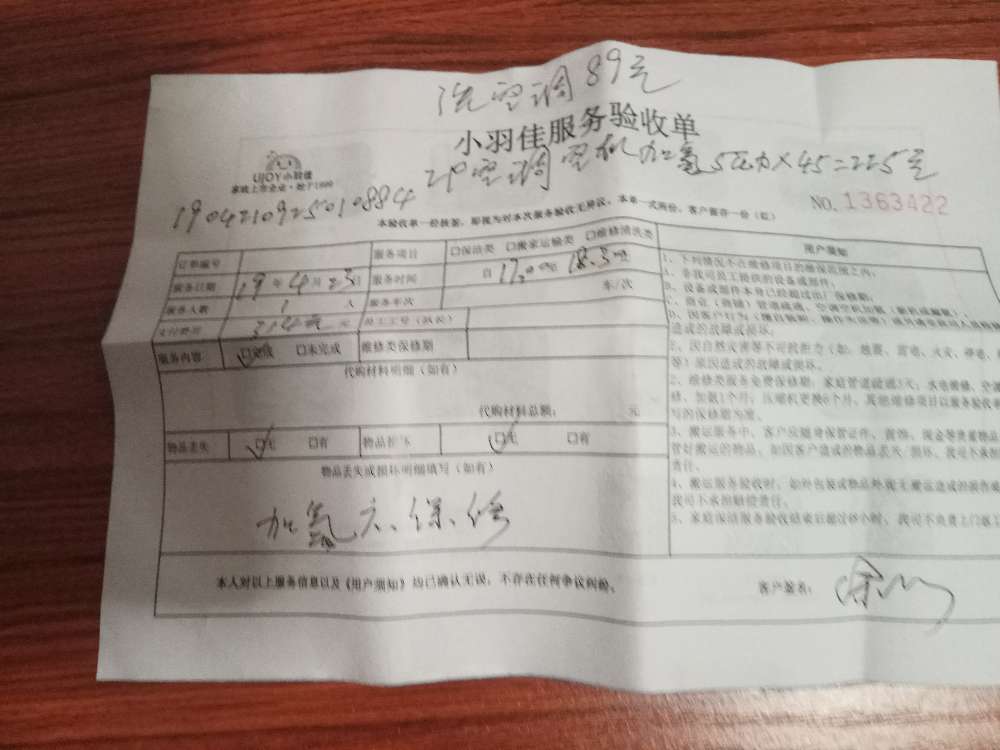 洗空调89元
小羽佳服务验收单
UJOY小羽佳
家政上市企业·始于1999
2P空调空机加氟5压力×45=225元
1904210925010884
NO.1363422
本验收单一份核签，即视为对本次服务验收无异议，本单一式两份，客户留存一份（红）
订单编号 服务项目 口保洁类 口搬家运输类 口维修清洗类
服务日期 19年4月23日 服务时间 自17:00 18:30
服务人数 1人 服务车次 车/次
支付费用 314元 元 员工工号(队长)
服务内容 口完成 口未完成 维修类保修期
代购材料明细（如有）
代购材料总额： 元
物品丢失 口无 口有 物品损坏 口无 口有
物品丢失或损坏明细填写（如有）
加氟无保修
本人对以上服务信息以及《用户须知》均已确认无误，不存在任何争议纠纷。
客户签名：
用户须知
1、下列情况不在维修项目的维保范围之内：
A、非我司员工提供的设备或部件；
B、设备或部件本身已经超过出厂保修期；
C、商业（商铺）管道疏通、空调空机加氟
造成的故障或损坏；
2、因自然灾害等不可抗拒力（如：地震、雷电、火灾、停电、
等）原因造成的故障或损坏。
2、维修类服务免费保修期：家庭管道疏通3天；水电维修、空调
修、加氟1个月；压缩机更换6个月。其他维修项目以服务验收单
写的保修期为准。
3、搬运服务中，客户应随身保管证件、首饰、现金等贵重物品
管好搬运的物品，如因客户造成的物品丢失/损坏，我司不承担
责任。
4、搬运服务验收时，如外包装或物品外观无搬运造成的损伤或
我司不承担赔偿责任。
5、家庭保洁服务验收结束后超过24小时，我司不负责上门返工